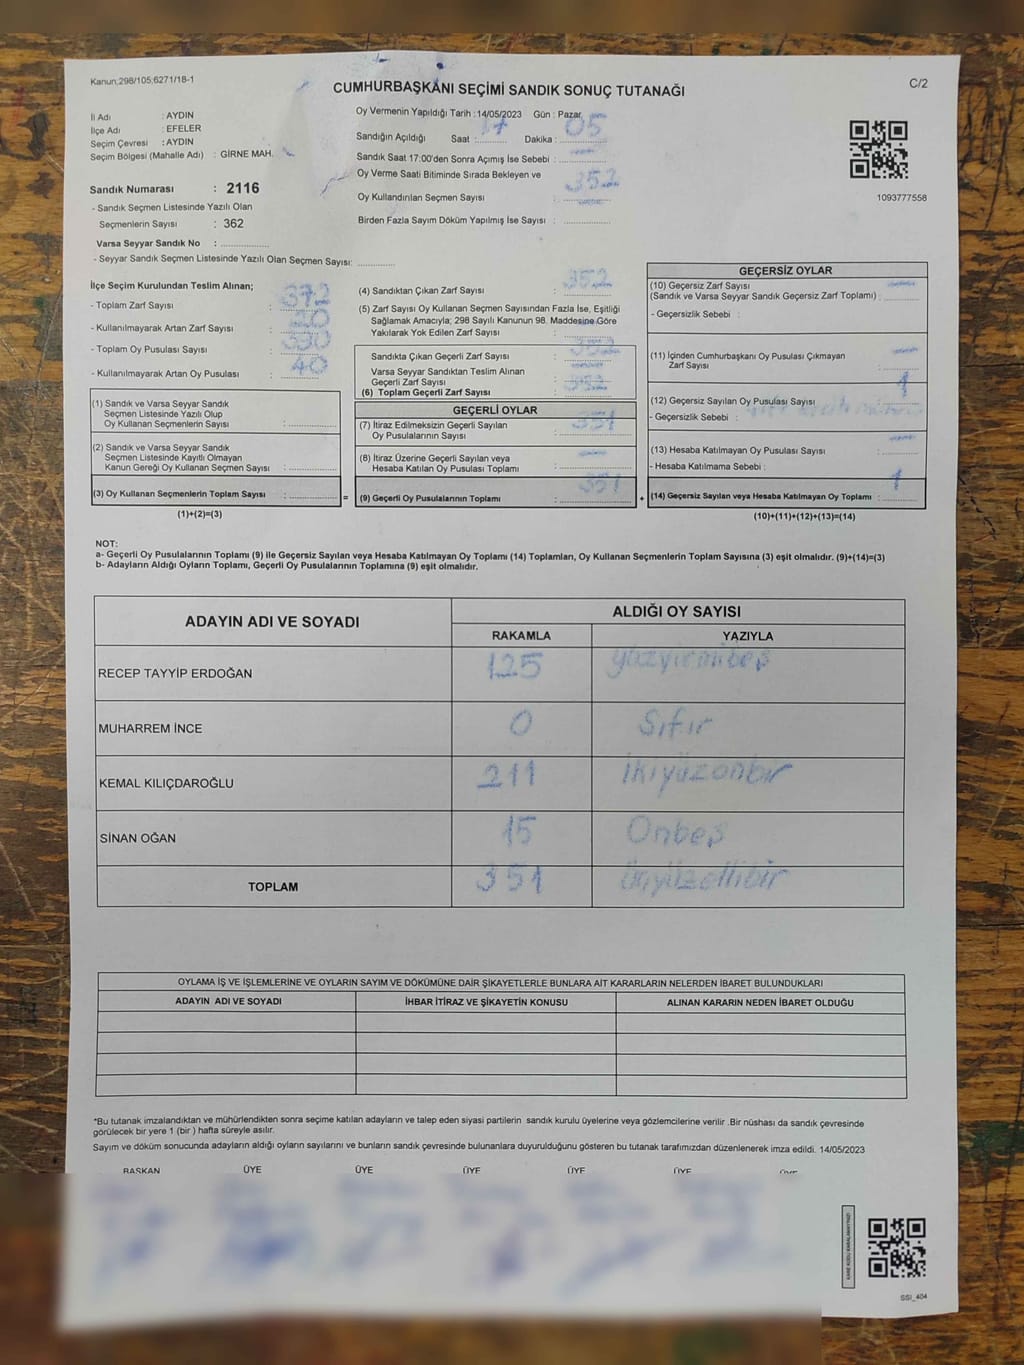 Kanun;298/105;6271/18-1
CUMHURBAŞKANI SEÇİMİ SANDIK SONUÇ TUTANAĞI
C/2
İl Adı : AYDIN
İlçe Adı : EFELER
Seçim Çevresi : AYDIN
Seçim Bölgesi (Mahalle Adı) : GİRNE MAH.
Sandık Numarası : 2116
- Sandık Seçmen Listesinde Yazılı Olan
Seçmenlerin Sayısı : 362
Varsa Seyyar Sandık No :
- Seyyar Sandık Seçmen Listesinde Yazılı Olan Seçmen Sayısı:
Oy Vermenin Yapıldığı Tarih : 14/05/2023 Gün : Pazar
Sandığın Açıldığı Saat : 17 Dakika : 05
Sandık Saat 17:00'den Sonra Açımış İse Sebebi :
Oy Verme Saati Bitiminde Sırada Bekleyen ve
Oy Kullandırılan Seçmen Sayısı : 352
Birden Fazla Sayım Döküm Yapılmış İse Sayısı :
1093777558
İlçe Seçim Kurulundan Teslim Alınan;
- Toplam Zarf Sayısı : 372
- Kullanılmayarak Artan Zarf Sayısı : 20
- Toplam Oy Pusulası Sayısı :
- Kullanılmayarak Artan Oy Pusulası : 40
(1) Sandık ve Varsa Seyyar Sandık
Seçmen Listesinde Yazılı Olup
Oy Kullanan Seçmenlerin Sayısı :
(2) Sandık ve Varsa Seyyar Sandık
Seçmen Listesinde Kayıtlı Olmayan
Kanun Gereği Oy Kullanan Seçmen Sayısı :
(3) Oy Kullanan Seçmenlerin Toplam Sayısı : =
(1)+(2)=(3)
(4) Sandıktan Çıkan Zarf Sayısı : 352
(5) Zarf Sayısı Oy Kullanan Seçmen Sayısından Fazla İse, Eşitliği
Sağlamak Amacıyla; 298 Sayılı Kanunun 98. Maddesine Göre
Yakılarak Yok Edilen Zarf Sayısı :
Sandıkta Çıkan Geçerli Zarf Sayısı : 352
Varsa Seyyar Sandıktan Teslim Alınan
Geçerli Zarf Sayısı :
(6) Toplam Geçerli Zarf Sayısı : 352
GEÇERLİ OYLAR
(7) İtiraz Edilmeksizin Geçerli Sayılan
Oy Pusulalarının Sayısı : 351
(8) İtiraz Üzerine Geçerli Sayılan veya
Hesaba Katılan Oy Pusulası Toplamı :
(9) Geçerli Oy Pusulalarının Toplamı : 351 +
GEÇERSİZ OYLAR
(10) Geçersiz Zarf Sayısı
(Sandık ve Varsa Seyyar Sandık Geçersiz Zarf Toplamı) :
- Geçersizlik Sebebi :
(11) İçinden Cumhurbaşkanı Oy Pusulası Çıkmayan
Zarf Sayısı :
(12) Geçersiz Sayılan Oy Pusulası Sayısı : 1
- Geçersizlik Sebebi :
(13) Hesaba Katılmayan Oy Pusulası Sayısı :
- Hesaba Katılmama Sebebi :
(14) Geçersiz Sayılan veya Hesaba Katılmayan Oy Toplamı : 1
(10)+(11)+(12)+(13)=(14)
NOT:
a- Geçerli Oy Pusulalarının Toplamı (9) ile Geçersiz Sayılan veya Hesaba Katılmayan Oy Toplamı (14) Toplamları, Oy Kullanan Seçmenlerin Toplam Sayısına (3) eşit olmalıdır. (9)+(14)=(3)
b- Adayların Aldığı Oyların Toplamı, Geçerli Oy Pusulalarının Toplamına (9) eşit olmalıdır.
ADAYIN ADI VE SOYADI ALDIĞI OY SAYISI
RAKAMLA YAZIYLA
RECEP TAYYİP ERDOĞAN 125 yüzyirmibeş
MUHARREM İNCE 0 Sıfır
KEMAL KILIÇDAROĞLU 211 ikiyüzonbir
SİNAN OĞAN 15 Onbeş
TOPLAM 351 üçyüzellibir
OYLAMA İŞ VE İŞLEMLERİNE VE OYLARIN SAYIM VE DÖKÜMÜNE DAİR ŞİKAYETLERLE BUNLARA AİT KARARLARIN NELERDEN İBARET BULUNDUKLARI
ADAYIN ADI VE SOYADI İHBAR İTİRAZ VE ŞİKAYETİN KONUSU ALINAN KARARIN NEDEN İBARET OLDUĞU
*Bu tutanak imzalandıktan ve mühürlendikten sonra seçime katılan adayların ve talep eden siyasi partilerin sandık kurulu üyelerine veya gözlemcilerine verilir .Bir nüshası da sandık çevresinde
görülecek bir yere 1 (bir ) hafta süreyle asılır.
Sayım ve döküm sonucunda adayların aldığı oyların sayılarını ve bunların sandık çevresinde bulunanlara duyurulduğunu gösteren bu tutanak tarafımızdan düzenlenerek imza edildi. 14/05/2023
BAŞKAN ÜYE ÜYE ÜYE ÜYE ÜYE ÜYE
KARE KODU KARALAMAYINIZ!
SSI_404